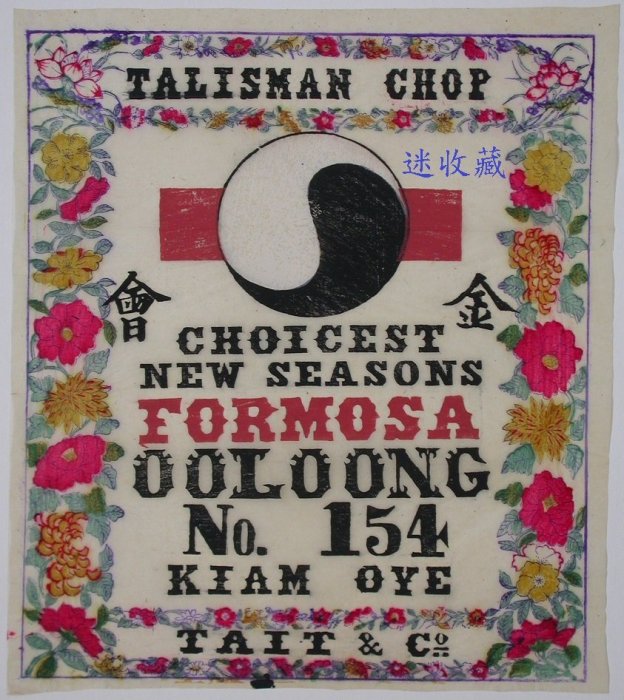 TALISMAN CHOP
迷收藏
會 金
CHOICEST
NEW SEASONS
FORMOSA
OOLOONG
No. 154
KIAM OYE
TAIT & Co